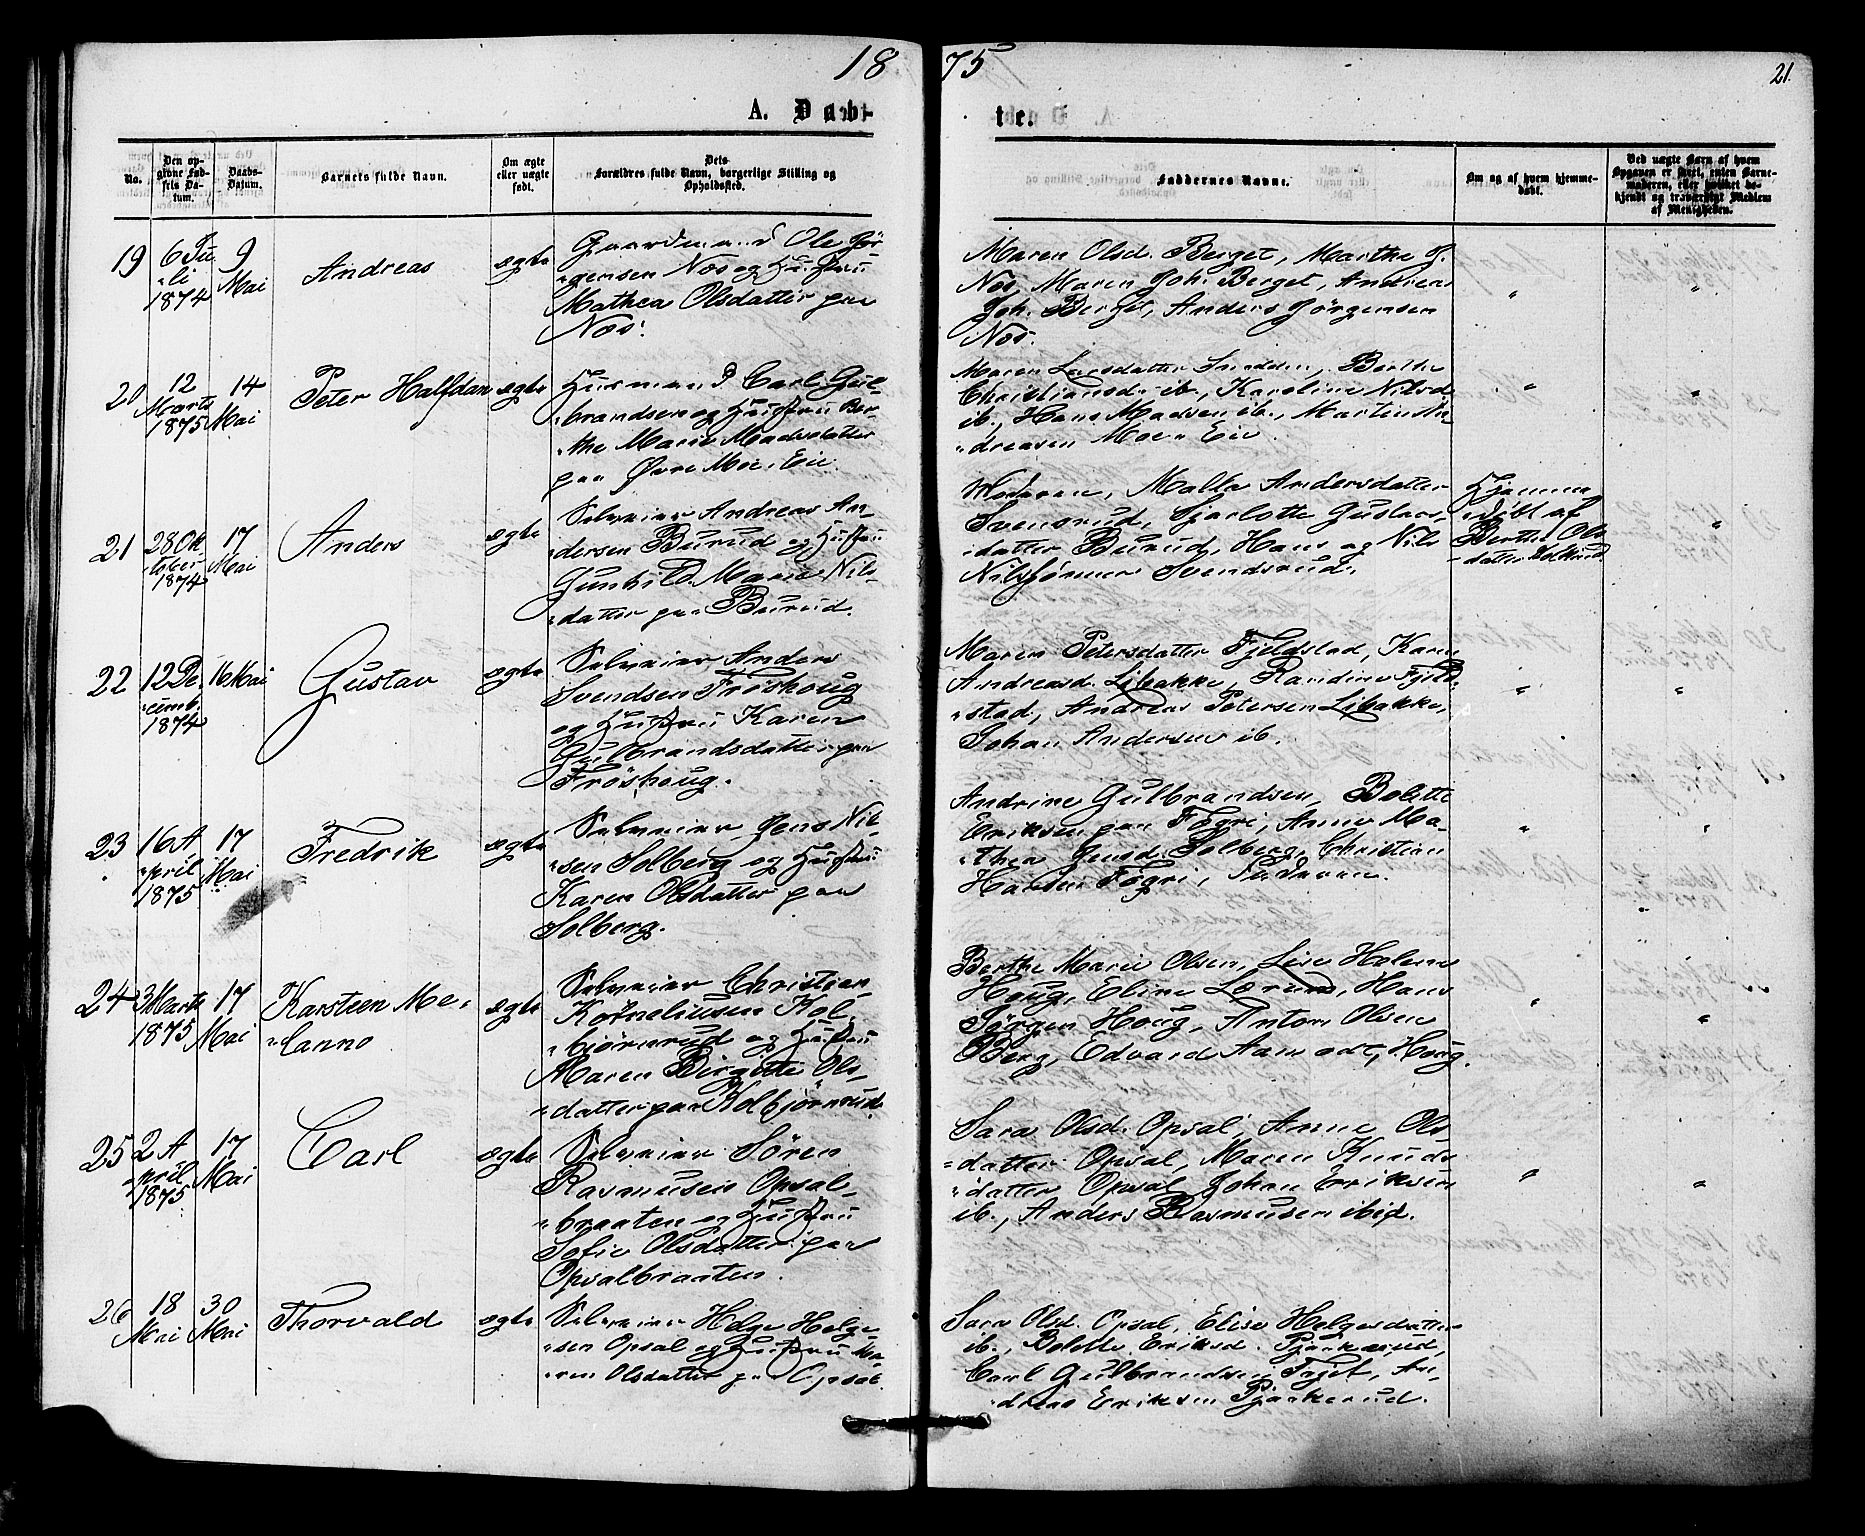 18 75
21.
A. Døbte.
No.
Den opgivne Fødsels Datum.
Daabs-Datum.
Barnets fulde Navn.
Om ægte eller uægte født.
Dets Forældres fulde Navn, borgerlige Stilling og Opholdssted.
Faddernes Navne.
Om og af hvem hjemmedøbt.
Ved uægte Barn af hvem Opgaven er skeet, enten Barnemoderen, eller hvilket bekjendt og troværdigt Medlem af Menigheden.
19
6 Ju
-li
1874
9
Mai
Andreas
ægte
Gaardmand Ole Jör
-gensen Nos og Hustru
Mathea Olsdatter paa
Nos.
Maren Olsd. Berget, Marthe J.
Nos, Maren Joh. Berget, Andreas
Joh. Berget, Anders Jörgensen
Nos.
"
"
20
12
Marts
1875
14
Mai
Peter Halfdan
ægte
Husmand Carl Gul
-brandsen og Hustru Ber-
-the Marie Madsdatter
paa Øvre Moe, Eie.
Maren Larsdatter, Berthe
Christiansd. ib., Karoline Nilsd.
ib., Hans Madsen ib., Martin An-
-dreasen Moe, Eie.
"
"
21
28 Ok-
-tober
1874
17
Mai
Anders
ægte
Selveier Andreas An-
-dersen Burud og Hustru
Gunhild Marie Nils-
-datter paa Burud.
Moderen, Malla Andersdatter
Svensrud, Sjarlotte Gustavs-
-datter Burud, Hans og Nils
Nilssönner Svendsrud.
Hjemme
-döbt af
Berthe Ols
-datter
"
22
12 De-
-cemb.
1874
16 Mai
Gustav
ægte
Selveier Anders
Svendsen Fröshoug
og Hustru Karen
Gulbrandsdatter paa
Fröshoug.
Maren Petersdatter Fjeldstad, Karen
Andreasd. Libakke, Randine Fjeld-
-stad, Andreas Petersen Libakke,
Johan Andersen ib.
"
"
23
16 A
-pril
1875
17
Mai
Fredrik
ægte
Selveier Jens Nil-
-sen Solberg og Hustru
Karen Olsdatter paa
Solberg.
Andrine Gulbrandsen, Bolette
Eriksen paa Fegri, Anne Ma-
-thea Jensd. Solberg, Christian
Hansen Fegri, Faderen.
"
"
24
3 Marts
1875
17
Mai
Karsteen Me-
-lanno
ægte
Selveier Christian
Korneliusen Kol
-bjørnrud og Hustru
Maren Birgitte Ols-
-datter paa Kolbjørnrud.
Berthe Marie Olsen, Lise Helene
Houg, Eline Lærum, Hans
Jörgen Houg, Anton Olsen
Berg, Edvard Aamodt, Houg.
"
"
25
2 A
-pril
1875
17
Mai
Carl
ægte
Selveier Sören
Rasmusen Opsal-
-braaten og Hustru
Sofie Olsdatter paa
Opsalbraaten.
Sara Olsd. Opsal, Anne Ols
-datter Opsal, Maren Knuds
-datter Opsal, Johan Eriksen
ib., Anders Rasmusen ibid.
"
"
26
18
Mai
30
Mai
Thorvald
ægte
Selveier Helge Helge-
-sen Opsal og Hustru Ma-
-ren Olsdatter paa Opsal.
Sara Olsd. Opsal, Elise Helgesdatter
ib., Bolette Eriksd. Pjaakerud,
Carl Gulbrandsen, An-
-dreas Eriksen Pjaakerud.